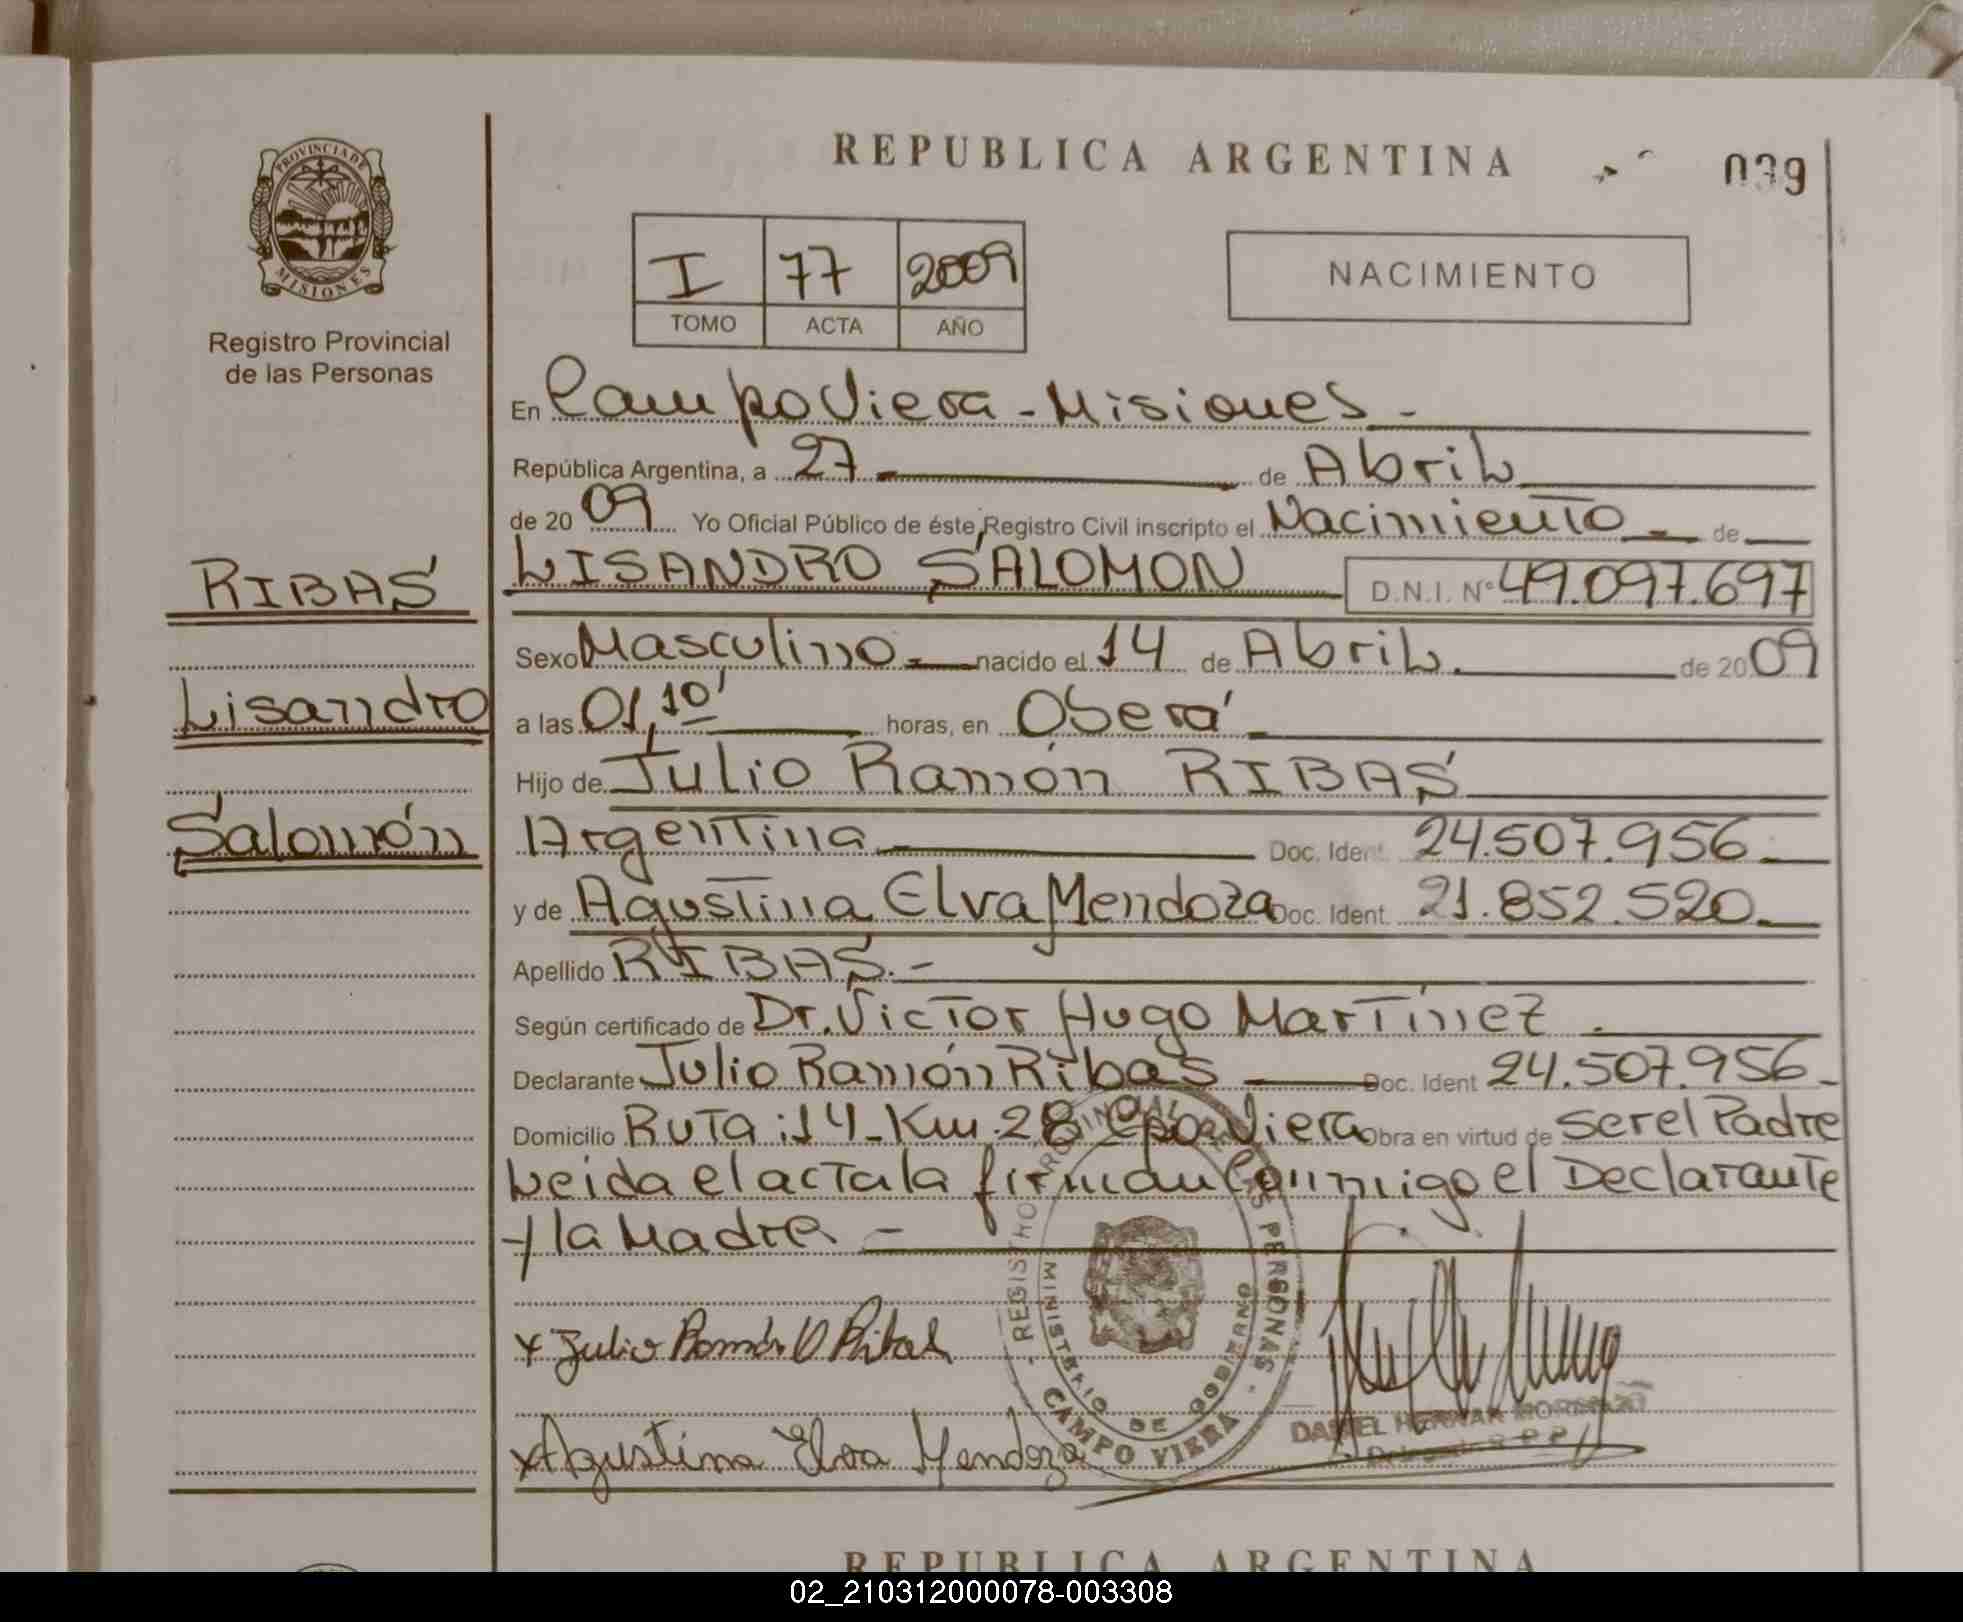 REPUBLICA ARGENTINA
039
PROVINCIA DE
MISIONES
Registro Provincial
de las Personas
I 77 2009
TOMO ACTA AÑO
NACIMIENTO
En Campo Viera - Misiones -
República Argentina, a 27 de Abril
de 20 09 Yo Oficial Público de éste Registro Civil inscripto el Nacimiento - de
LISANDRO SALOMON D.N.I. N° 49.097.697
RIBAS
Sexo Masculino - nacido el 14 de Abril de 20 09
Lisandro
a las 01,10' horas, en Oberá
Hijo de Julio Ramón RIBAS
Salomón
Argentina Doc. Ident. 24.507.956
y de Agustina Elva Mendoza Doc. Ident. 21.852.520
Apellido RIBAS.-
Según certificado de Dr. Victor Hugo Martínez.
Declarante Julio Ramón Ribas Doc. Ident 24.507.956-
Domicilio Ruta:14-Km.28 Cpo Viera Obra en virtud de ser el Padre
Leida el acta la firman conmigo el Declarante
y la Madre -
x Julio Ramón Ribas
x Agustina Elva Mendoza
REGISTRO PROVINCIAL DE LAS PERSONAS
MINISTERIO DE GOBIERNO
CAMPO VIERA
DANIEL HERNAN
REPUBLICA ARGENTINA
02_210312000078-003308